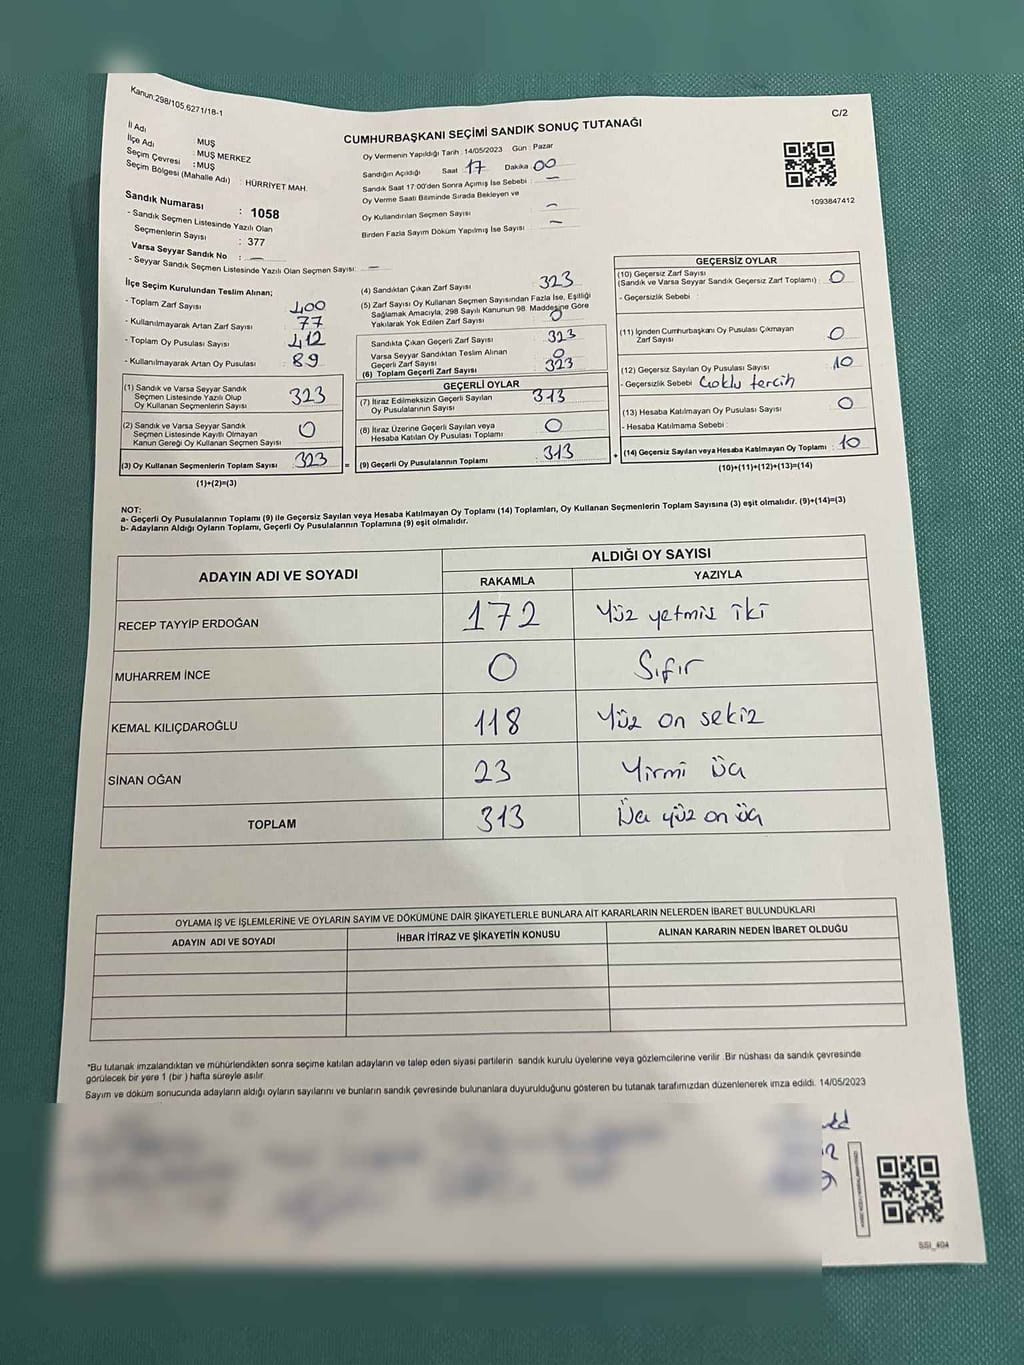 Kanun:298/105,6271/18-1
C/2
CUMHURBAŞKANI SEÇİMİ SANDIK SONUÇ TUTANAĞI
İl Adı : MUŞ
İlçe Adı : MUŞ MERKEZ
Seçim Çevresi : MUŞ
Seçim Bölgesi (Mahalle Adı) : HÜRRİYET MAH.
Sandık Numarası : 1058
- Sandık Seçmen Listesinde Yazılı Olan
Seçmenlerin Sayısı : 377
Varsa Seyyar Sandık No : —
- Seyyar Sandık Seçmen Listesinde Yazılı Olan Seçmen Sayısı: —
Oy Vermenin Yapıldığı Tarih : 14/05/2023 Gün : Pazar
Sandığın Açıldığı Saat : 17 Dakika : 00
Sandık Saat 17:00'den Sonra Açımış İse Sebebi : —
Oy Verme Saati Bitiminde Sırada Bekleyen ve
Oy Kullandırılan Seçmen Sayısı : —
Birden Fazla Sayım Döküm Yapılmış İse Sayısı : —
1093847412
İlçe Seçim Kurulundan Teslim Alınan;
- Toplam Zarf Sayısı : 400
- Kullanılmayarak Artan Zarf Sayısı : 77
- Toplam Oy Pusulası Sayısı : 412
- Kullanılmayarak Artan Oy Pusulası : 89
(1) Sandık ve Varsa Seyyar Sandık
Seçmen Listesinde Yazılı Olup
Oy Kullanan Seçmenlerin Sayısı : 323
(2) Sandık ve Varsa Seyyar Sandık
Seçmen Listesinde Kayıtlı Olmayan
Kanun Gereği Oy Kullanan Seçmen Sayısı : 0
(3) Oy Kullanan Seçmenlerin Toplam Sayısı : 323 =
(1)+(2)=(3)
(4) Sandıktan Çıkan Zarf Sayısı : 323
(5) Zarf Sayısı Oy Kullanan Seçmen Sayısından Fazla İse, Eşitliği
Sağlamak Amacıyla; 298 Sayılı Kanunun 98. Maddesine Göre
Yakılarak Yok Edilen Zarf Sayısı : 0
Sandıkta Çıkan Geçerli Zarf Sayısı : 323
Varsa Seyyar Sandıktan Teslim Alınan
Geçerli Zarf Sayısı : 0
(6) Toplam Geçerli Zarf Sayısı : 323
GEÇERLİ OYLAR
(7) İtiraz Edilmeksizin Geçerli Sayılan
Oy Pusulalarının Sayısı : 313
(8) İtiraz Üzerine Geçerli Sayılan veya
Hesaba Katılan Oy Pusulası Toplamı : 0
(9) Geçerli Oy Pusulalarının Toplamı : 313 +
GEÇERSİZ OYLAR
(10) Geçersiz Zarf Sayısı
(Sandık ve Varsa Seyyar Sandık Geçersiz Zarf Toplamı) : 0
- Geçersizlik Sebebi :
(11) İçinden Cumhurbaşkanı Oy Pusulası Çıkmayan
Zarf Sayısı : 0
(12) Geçersiz Sayılan Oy Pusulası Sayısı : 10
- Geçersizlik Sebebi : Çoklu tercih
(13) Hesaba Katılmayan Oy Pusulası Sayısı : 0
- Hesaba Katılmama Sebebi :
(14) Geçersiz Sayılan veya Hesaba Katılmayan Oy Toplamı : 10
(10)+(11)+(12)+(13)=(14)
NOT:
a- Geçerli Oy Pusulalarının Toplamı (9) ile Geçersiz Sayılan veya Hesaba Katılmayan Oy Toplamı (14) Toplamları, Oy Kullanan Seçmenlerin Toplam Sayısına (3) eşit olmalıdır. (9)+(14)=(3)
b- Adayların Aldığı Oyların Toplamı, Geçerli Oy Pusulalarının Toplamına (9) eşit olmalıdır.
ADAYIN ADI VE SOYADI ALDIĞI OY SAYISI
RAKAMLA YAZIYLA
RECEP TAYYİP ERDOĞAN 172 Yüz yetmiş iki
MUHARREM İNCE 0 Sıfır
KEMAL KILIÇDAROĞLU 118 Yüz on sekiz
SİNAN OĞAN 23 Yirmi üç
TOPLAM 313 Üç yüz on üç
OYLAMA İŞ VE İŞLEMLERİNE VE OYLARIN SAYIM VE DÖKÜMÜNE DAİR ŞİKAYETLERLE BUNLARA AİT KARARLARIN NELERDEN İBARET BULUNDUKLARI
ADAYIN ADI VE SOYADI İHBAR İTİRAZ VE ŞİKAYETİN KONUSU ALINAN KARARIN NEDEN İBARET OLDUĞU
*Bu tutanak imzalandıktan ve mühürlendikten sonra seçime katılan adayların ve talep eden siyasi partilerin sandık kurulu üyelerine veya gözlemcilerine verilir. Bir nüshası da sandık çevresinde
görülecek bir yere 1 (bir ) hafta süreyle asılır.
Sayım ve döküm sonucunda adayların aldığı oyların sayılarını ve bunların sandık çevresinde bulunanlara duyurulduğunu gösteren bu tutanak tarafımızdan düzenlenerek imza edildi. 14/05/2023
SSI_404